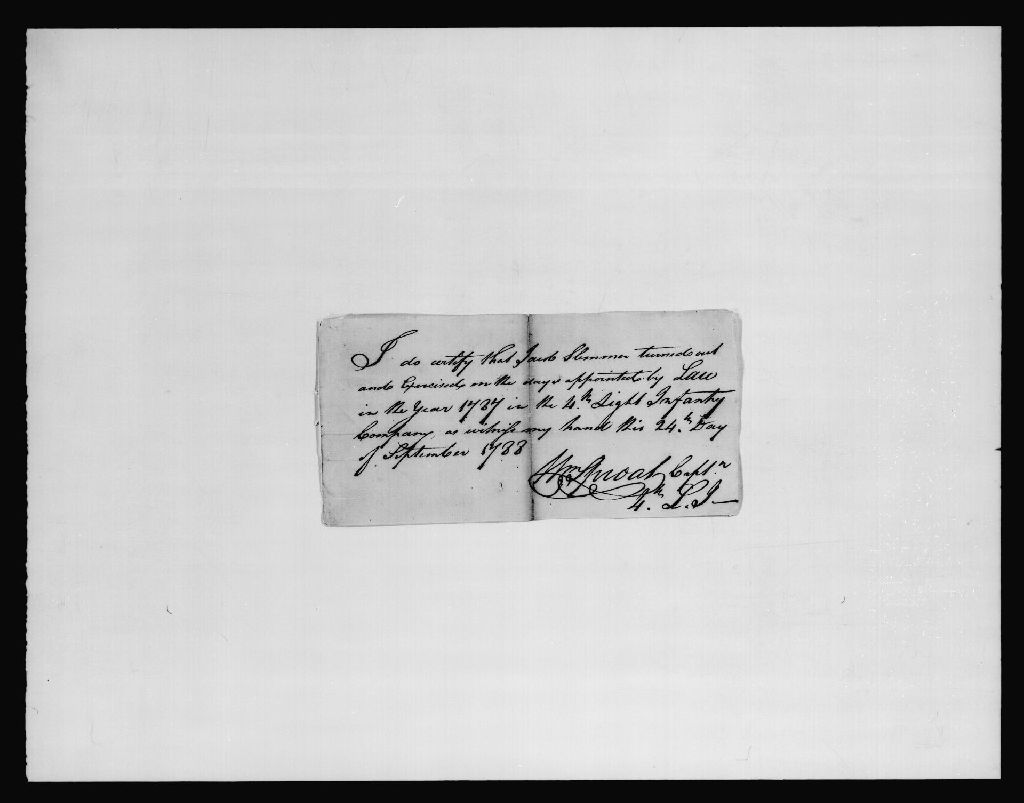 I do certify that Jacob Slemmer turned out
and Exercised on the days appointed by Law
in the Year 1787 in the 4.th Light Infantry
Company as witness my hand this 24.th Day
of September 1788
Wm Sproat Capt.n
4.th L.I—